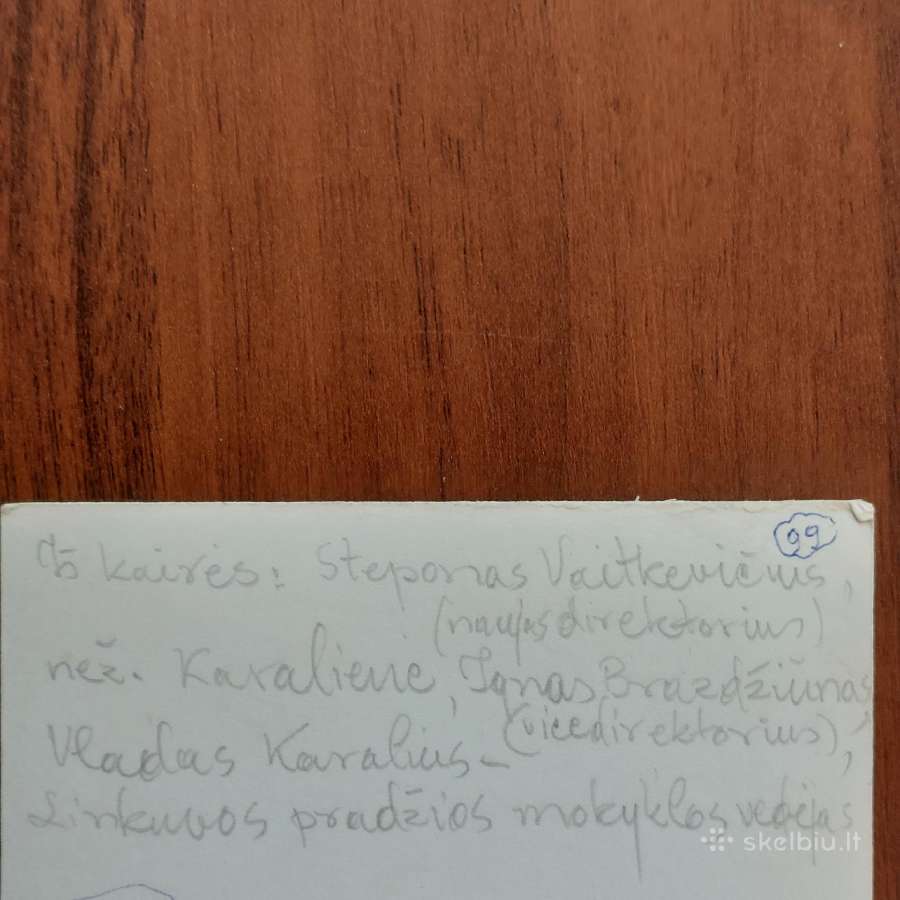 99
Iš kairės: Steponas Vaitkevičius,
(naujas direktorius)
než. Karalienė, Ignas Brazdžiūnas,
(vicedirektorius),
Vladas Karalius-
Linkuvos pradžios mokyklos vedėjas
skelbiu.lt